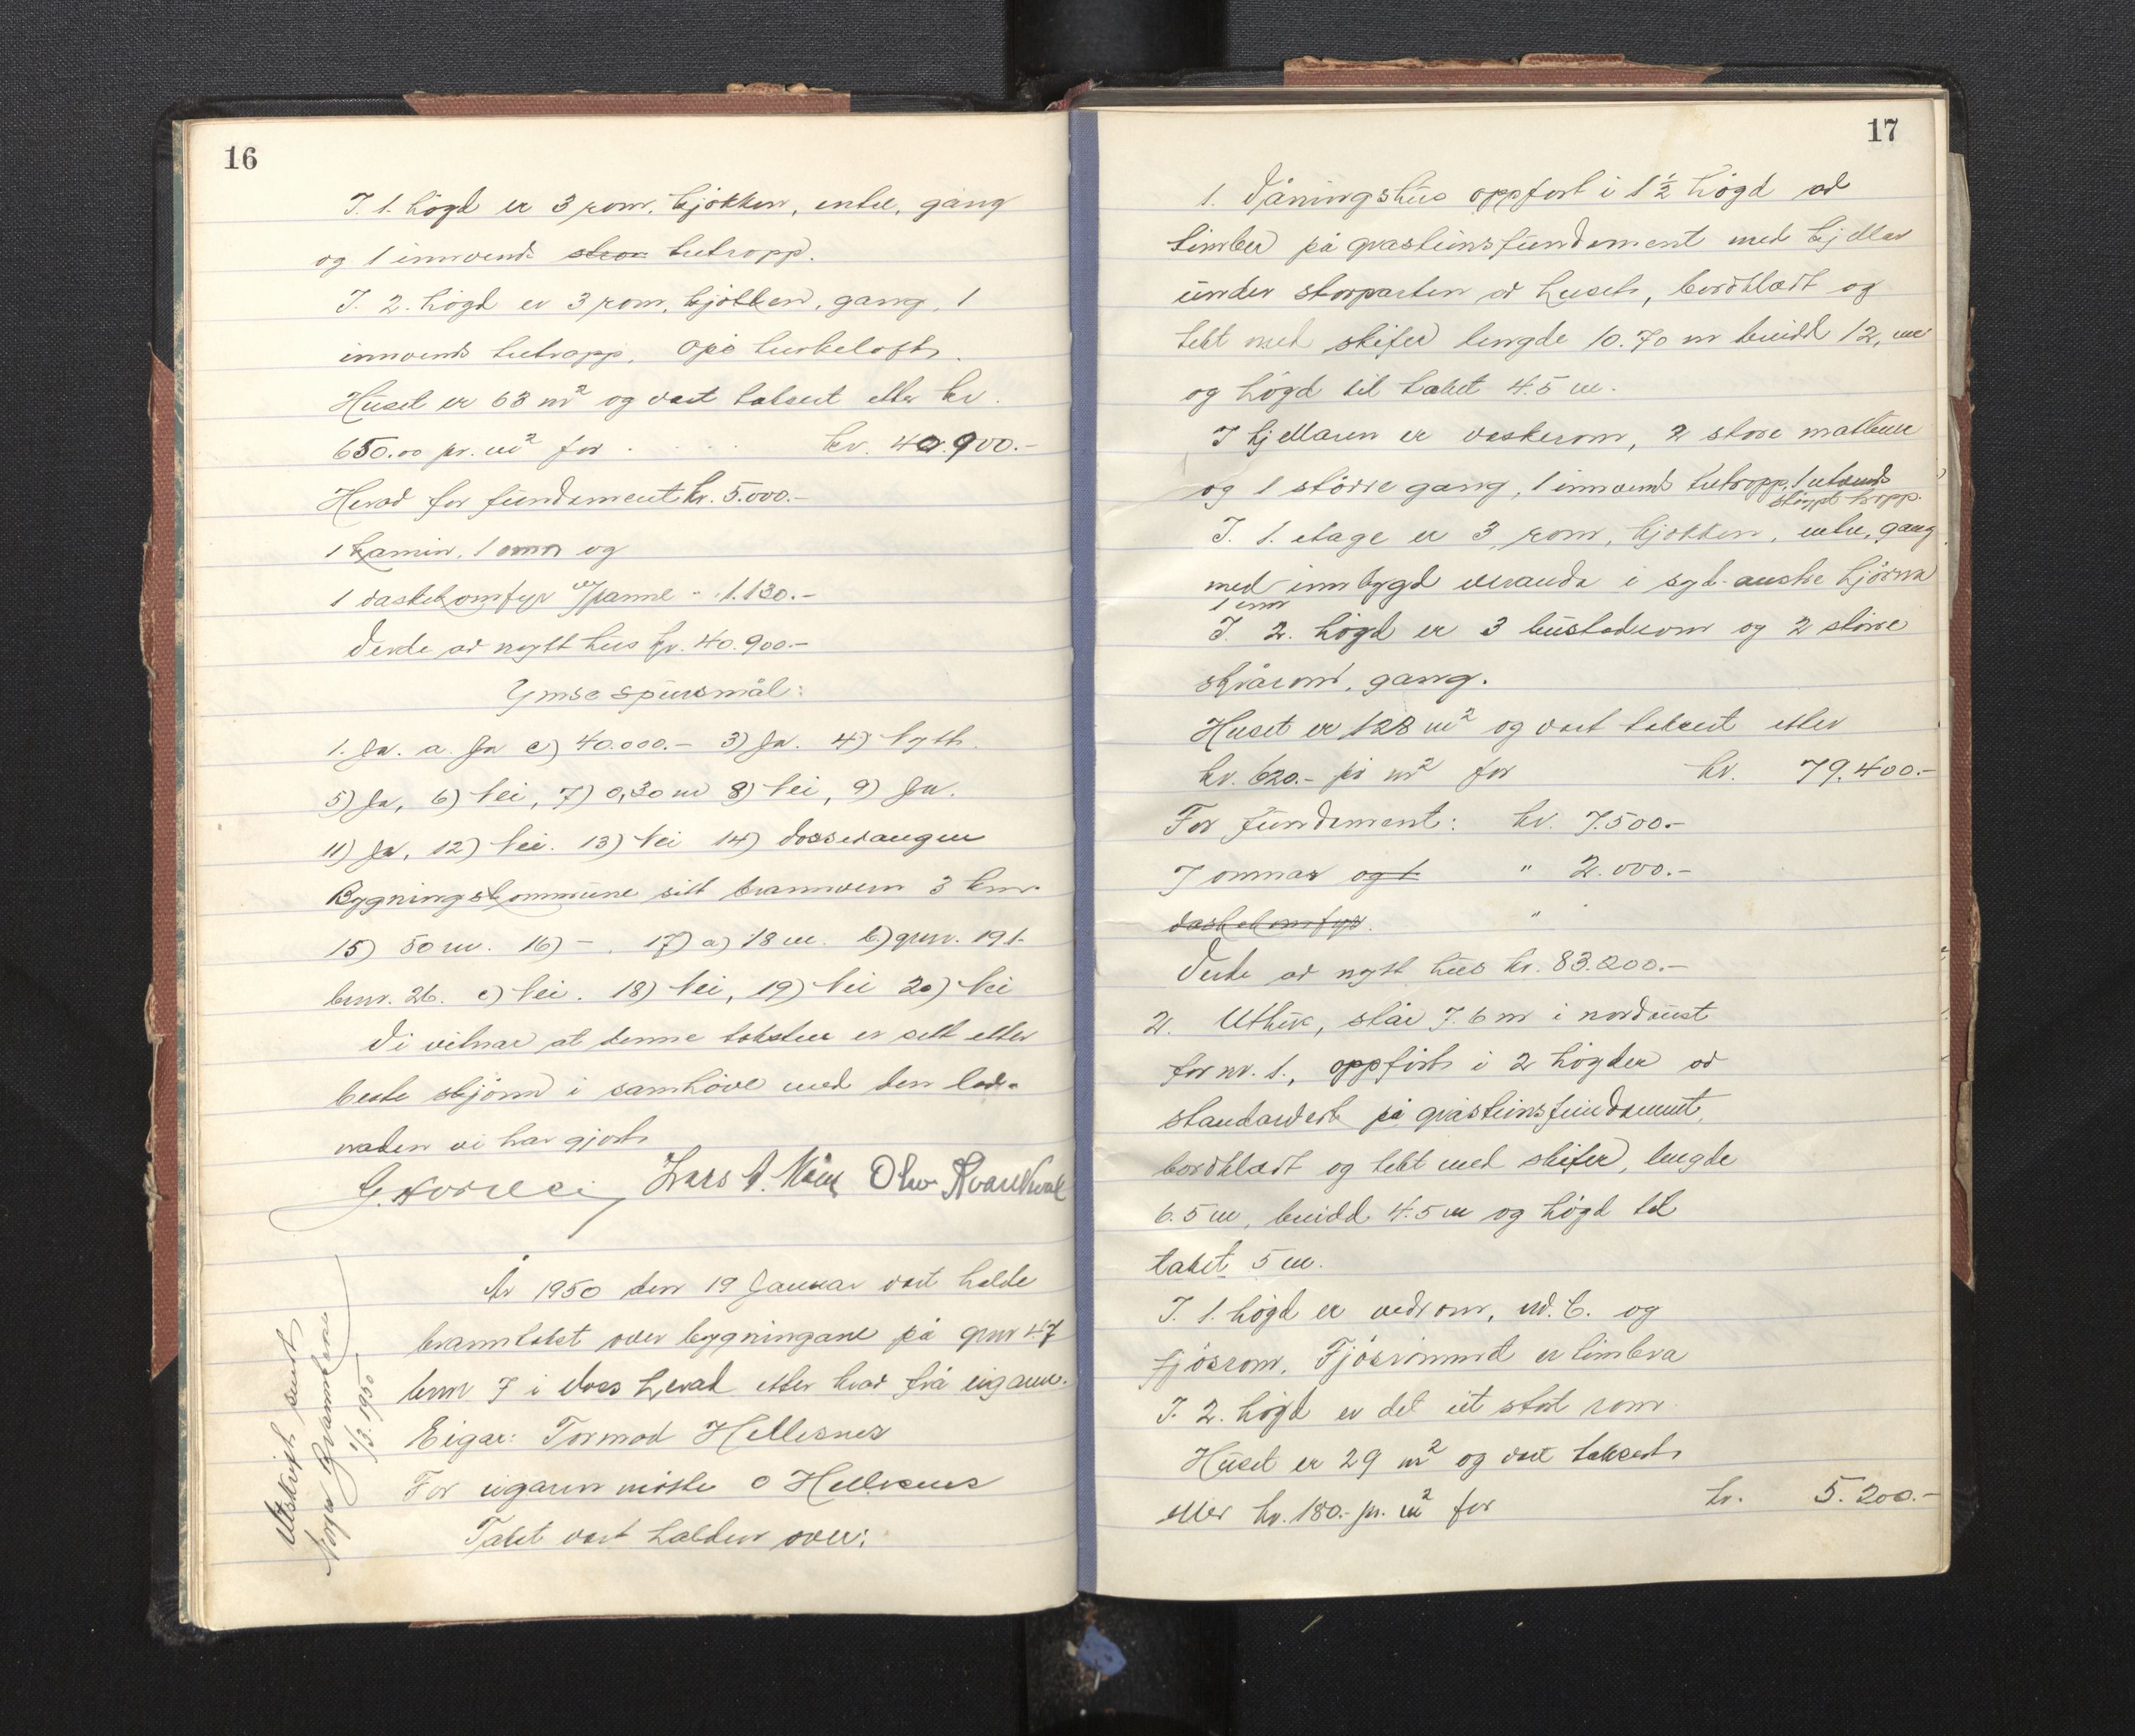 16
I. 1. högd er 3 rom, kjökken, entre, gang
og 1 innvend. tretropp.
I. 2. högd er 3 rom, kjökken, gang, 1
innvend. tretrapp, opå turkeloft.
Huset er 63 m² og vart taksert etter kr.
650.00 pr. m² for . . . . kr. 40.900.-
Herav for fundament kr. 5.000.-
1 kamin, 1 omn og
1 vaskekomfyr m/panne " 1.130.-
Verde av nytt hus kr. 40.900.-
Ymse spursmål:
1. Ja. a. Ja c) 40.000.- 3) Ja. 4) Nytt.
5) Ja, 6) Nei, 7) 0,30 m 8) Nei, 9) Ja.
11) Ja, 12) Nei. 13) Nei 14) Vossevangen
Bygningskommune sitt brannvern 3 km.
15) 50 m. 16) - . 17) a) 18 m. b.) gnr. 191.
bnr. 26. c) Nei. 18) Nei, 19) Nei 20) Nei
Vi vitnar at denne taksten er sett etter
beste skjönn i samhöve med den lov-
naden vi har gjort.
Lars
År 1950 den 19 Januar vart halde
branntakst over bygningane på gnr 47
bnr 7 i Voss herad etter krav frå eigaren.
Eigar: Tormod Hellesnes
For eigaren mötte O Hellesnes
Takst vart halden over:
Utskrift sendt
Noregs Brannkasse
1/3. 1950
17
1. Våningshus oppfört i 1½ högd av
timber på gråsteinsfundament med kjellar
under storparten av huset, bordklædt og
tekt med skifer lengde 10.70 m breidd 12, m
og högd til taket 4.5 m.
I kjellaren er vaskerom, 2 store matbuer
og 1 större gang, 1 innvend. tretropp, 1 utvend.
stöypt tropp.
I. 1. etage er 3 rom, kjökken, entre, gang
med innbygd veranda i syd-austre hjörna
I. 2. högd er 3 bustadrom og 2 större
skrårom, gang.
Huset er 128 m² og vart taksert etter
kr. 620.- på m² for kr. 79.400.-
For fundament: kr. 7.500.-
7 omnar og 1 " 2.000.-
vaskekomfyr. "
Verde av nytt hus kr. 83.200.-
2. Uthus, står 7.6 m i nordaust
for nr. 1., oppfört i 2 högder av
standardverk på gråsteinsfundament,
bordklædt og tekt med skifer, lengde
6.5 m, breidd 4.5 m og högd til
taket 5 m.
I. 1. högd er vedrom, w.c. og
fjösrom. Fjösrommet er timbra
I. 2. högd er det eit stort rom
Huset er 29 m² og vart taksert
etter kr. 180.- pr. m² for kr. 5.200.-